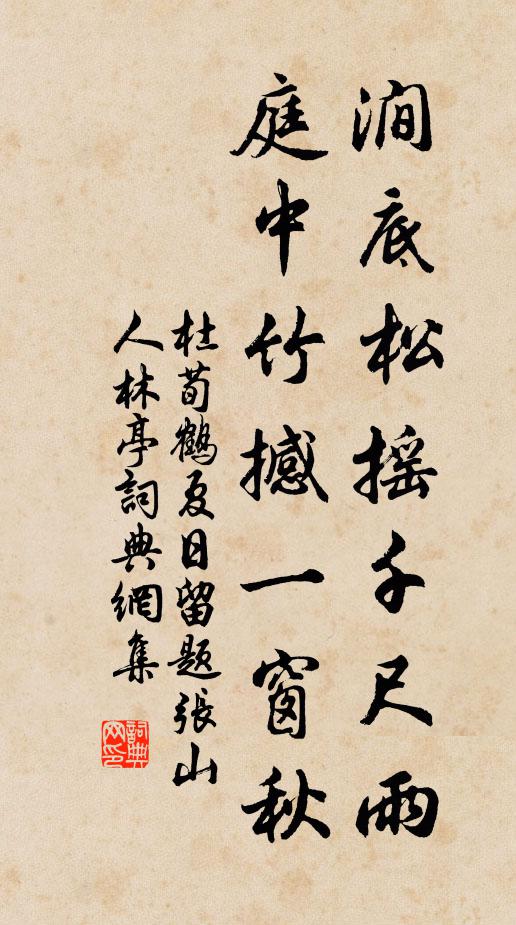 澗底松摇千尺雨
庭中竹撼一窗秋
杜荀鶴夏日留题張山
人林亭詞典網集
詞典网印